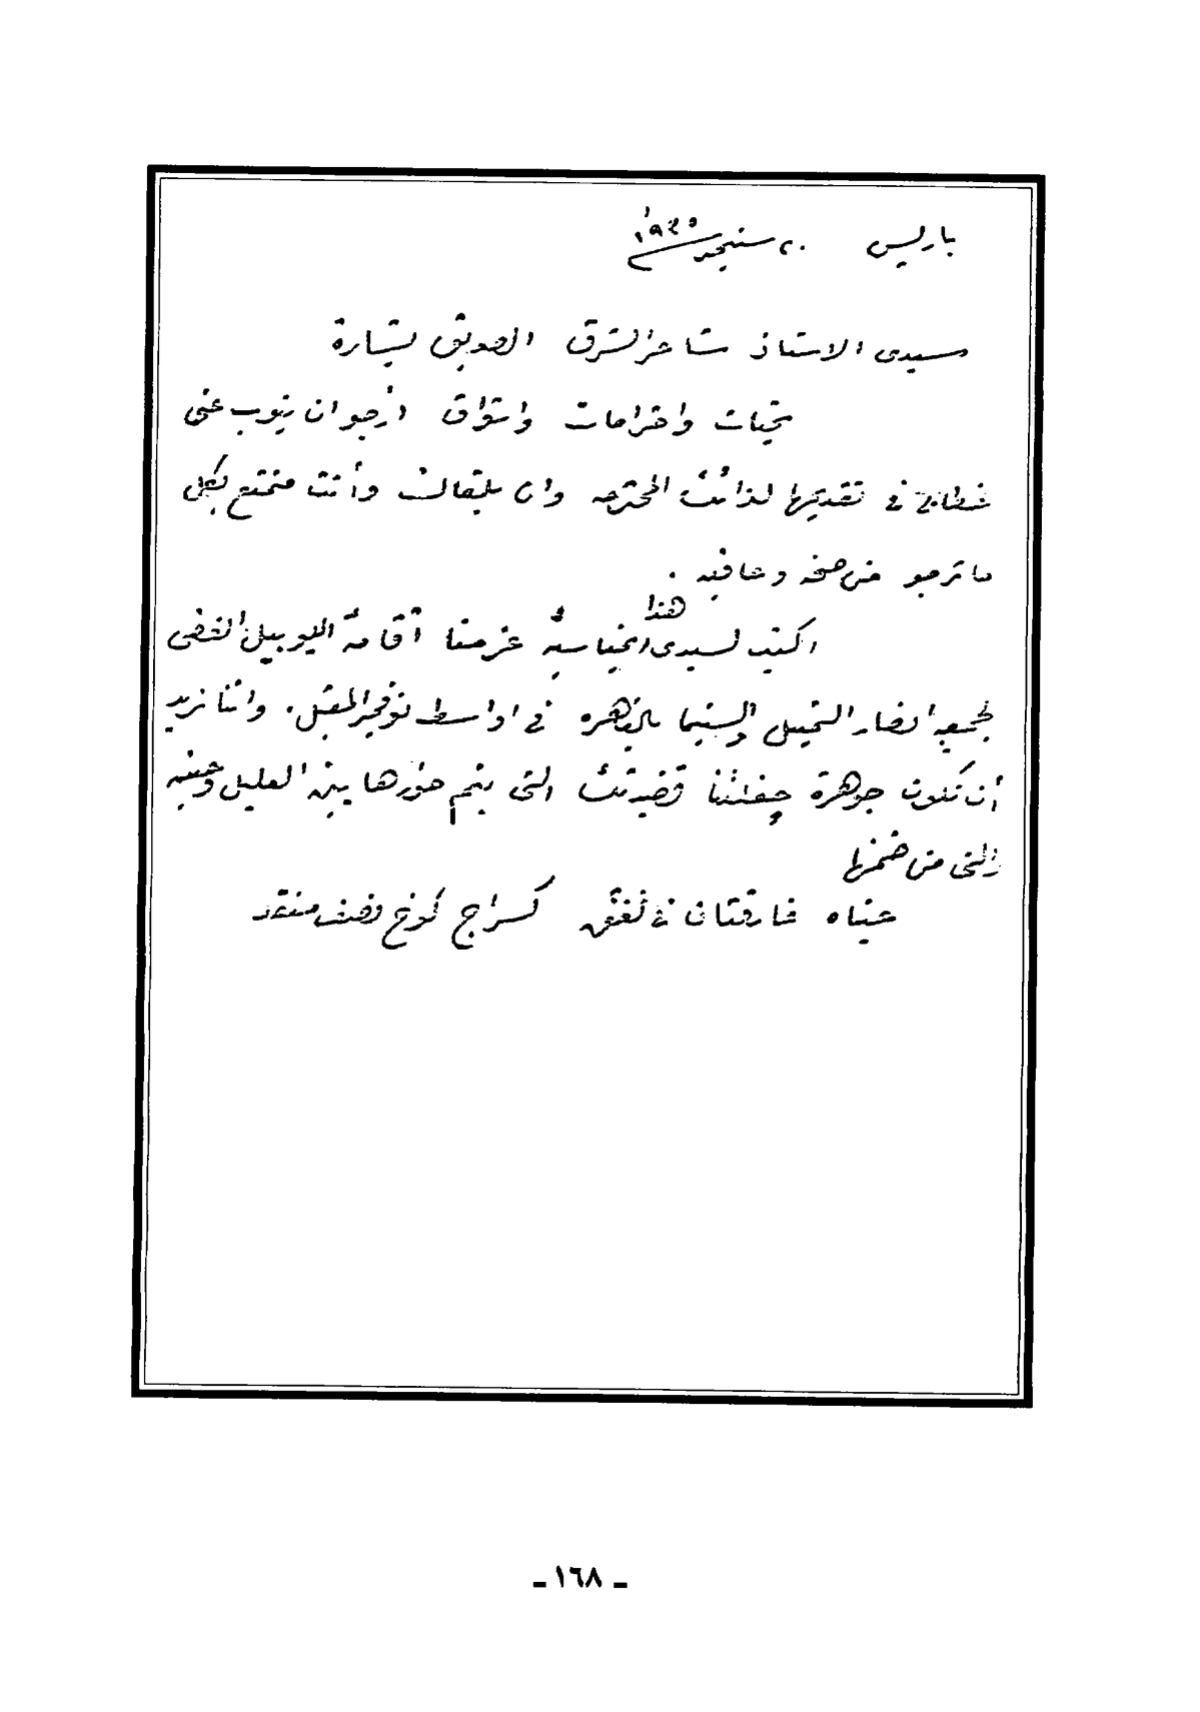 باريس ٢٠ سبتمبر ١٩٣٥
سيدى الاستاذ شاعر الشرق الصديق بشارة
تحيات واحترامات واشواق أرجو ان ينوب عنى
خطابى فى تقديمها لذاتك المحترمه وان يلقاك وأنت متمتع بكل
ما ترجو من صحه وعافيه .
اكتب لسيدى هذا بمناسبة عزمنا أقامة اليوبيل الفضى
لجمعيه انصار التمثيل والسينما بالقاهره فى اواسط نوفمبر المقبل . واننا نريد
أن تكون جوهرة حفلتنا قصيدتك التى يتم حوارها بين العليل وحبيبه
والتى من ضمنها
عيناه غارقتان فى نفق كسراج كوخ نصف متقد
- ١٦٨ -